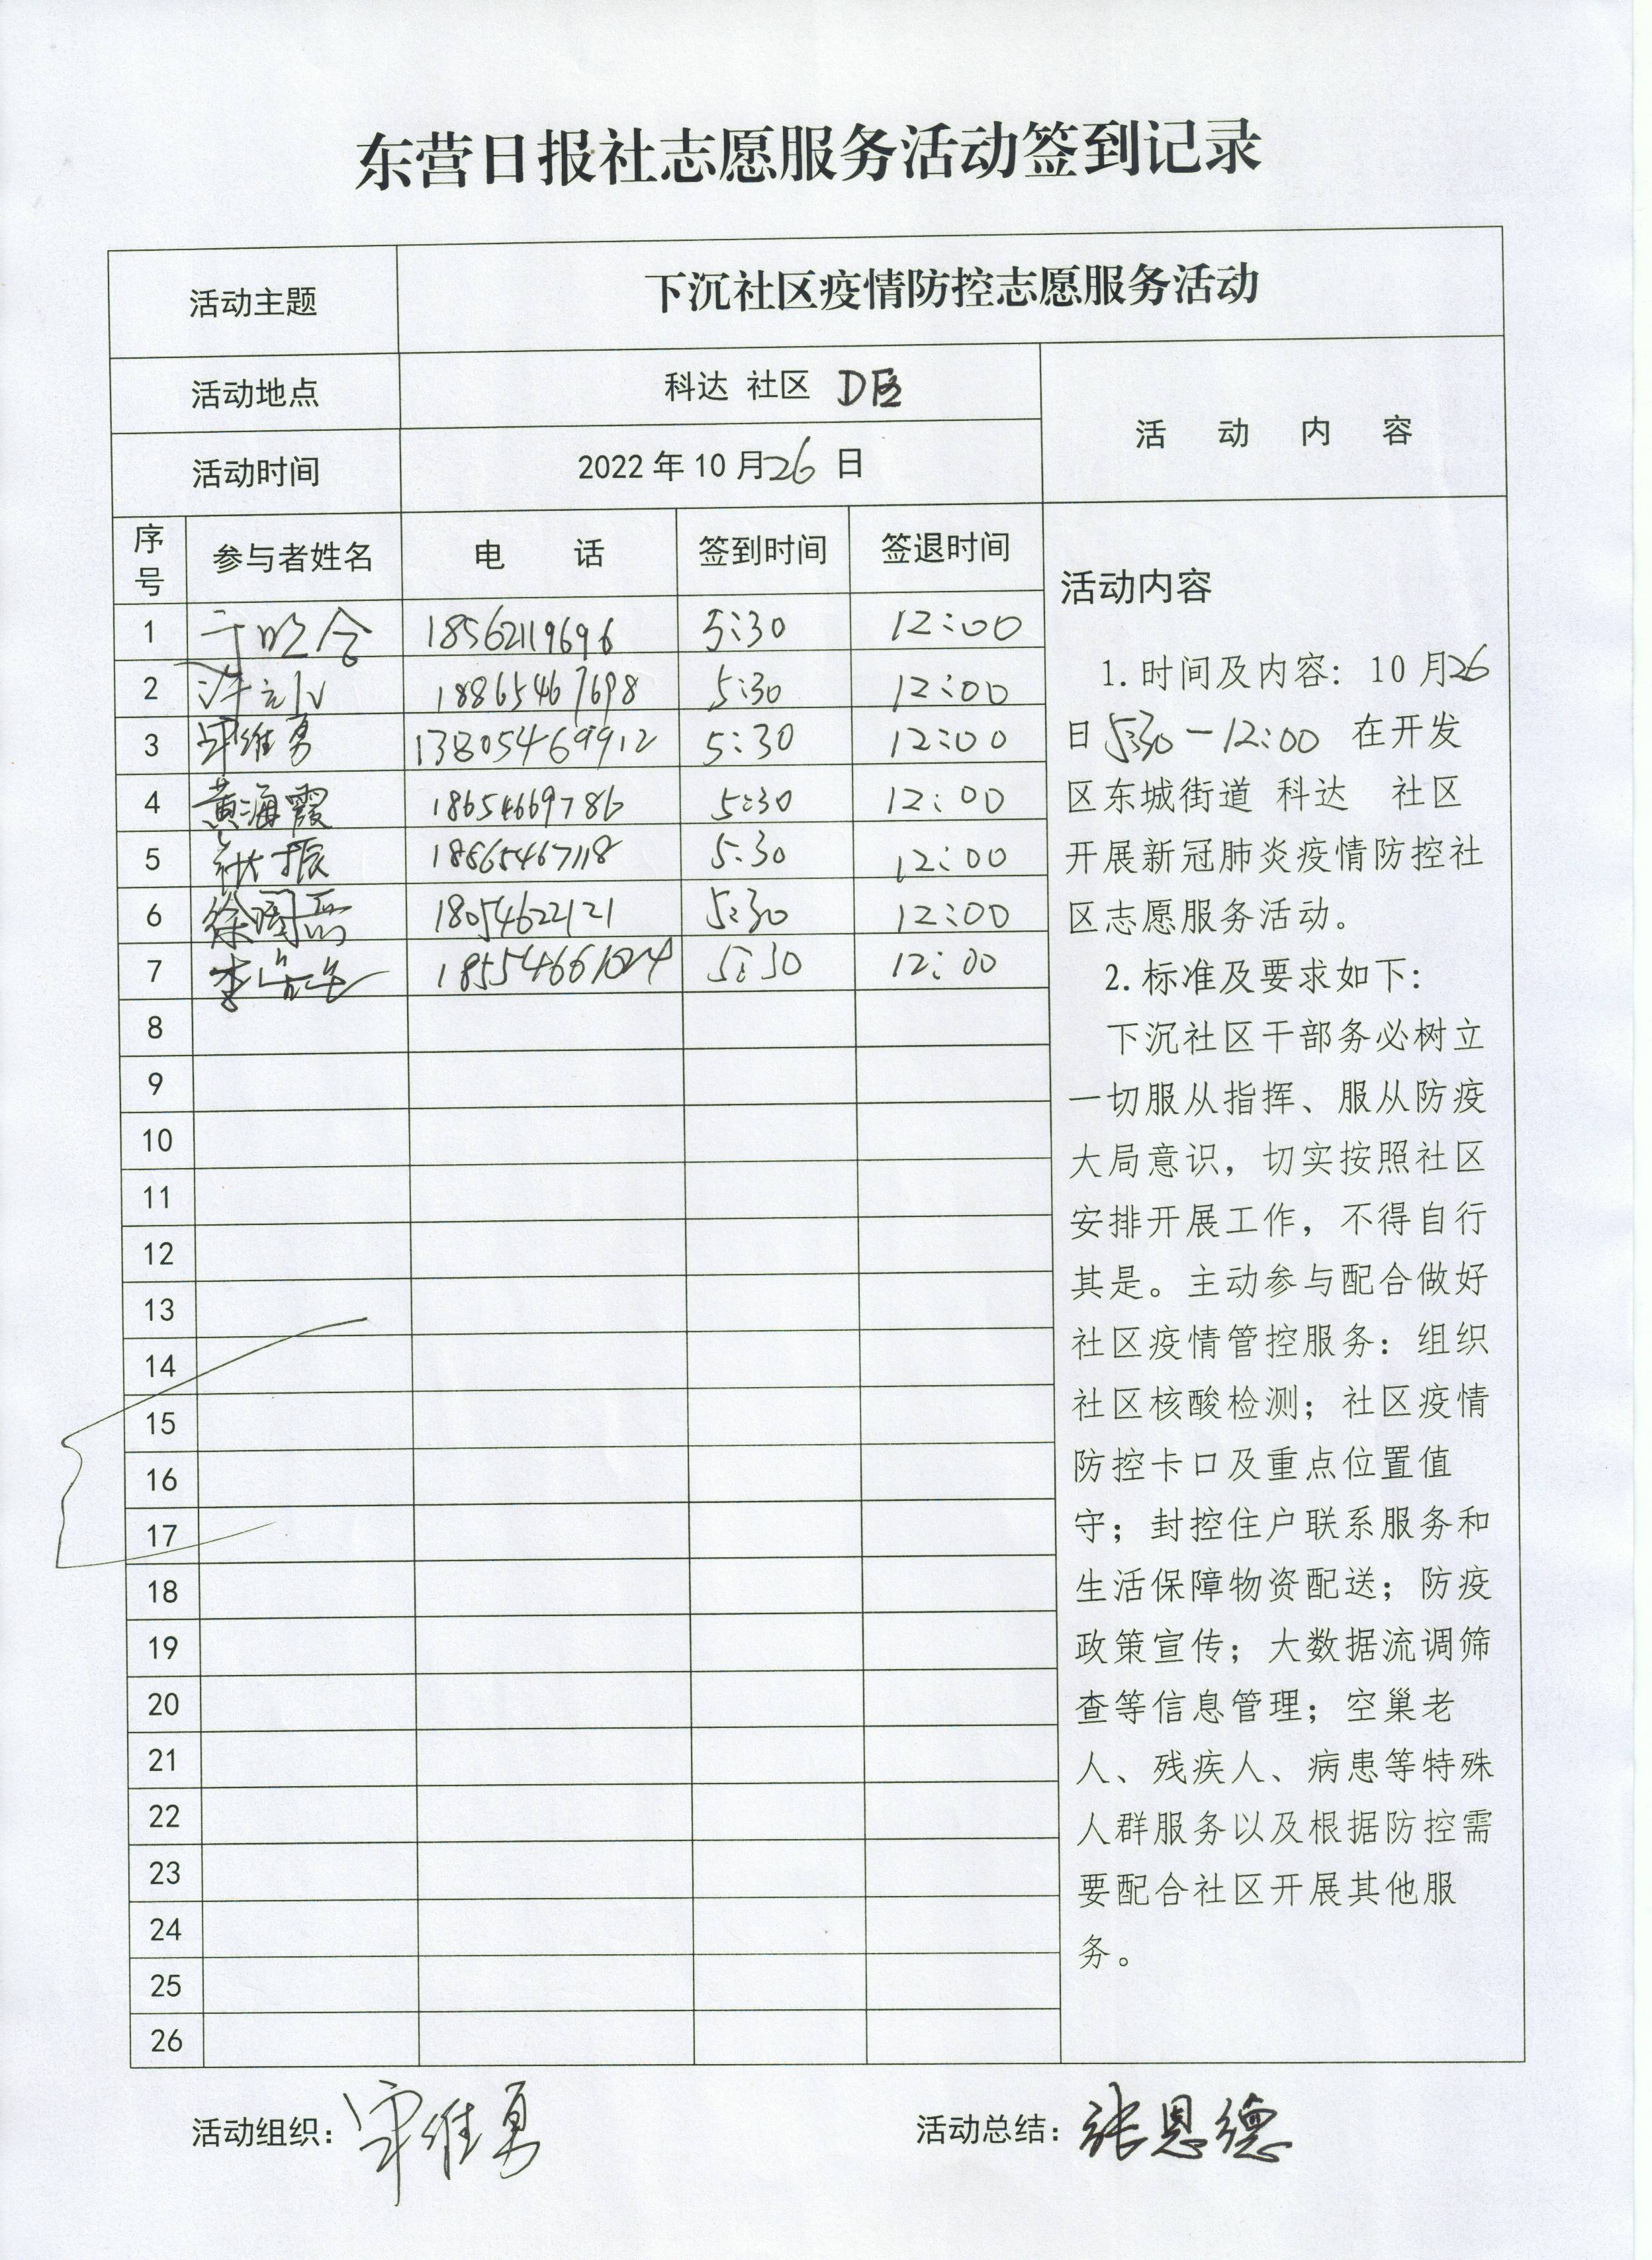 东营日报社志愿服务活动签到记录
活动主题 下沉社区疫情防控志愿服务活动
活动地点 科达 社区 D区 活 动 内 容
活动时间 2022年10月26日
序号 参与者姓名 电 话 签到时间 签退时间
1 18562119696 5:30 12:00
2 18865467698 5:30 12:00
3 维勇 13805469912 5:30 12:00
4 黄海霞 18654669786 5:30 12:00
5 振 18665467118 5:30 12:00
6 徐 18054622121 5:30 12:00
7 李 5:30 12:00
8
9
10
11
12
13
14
15
16
17
18
19
20
21
22
23
24
25
26
活动内容
1.时间及内容：10月26
日5:30-12:00 在开发
区东城街道 科达 社区
开展新冠肺炎疫情防控社
区志愿服务活动。
2.标准及要求如下：
下沉社区干部务必树立
一切服从指挥、服从防疫
大局意识，切实按照社区
安排开展工作，不得自行
其是。主动参与配合做好
社区疫情管控服务：组织
社区核酸检测；社区疫情
防控卡口及重点位置值
守；封控住户联系服务和
生活保障物资配送；防疫
政策宣传；大数据流调筛
查等信息管理；空巢老
人、残疾人、病患等特殊
人群服务以及根据防控需
要配合社区开展其他服
务。
活动组织：维勇 活动总结：张恩德